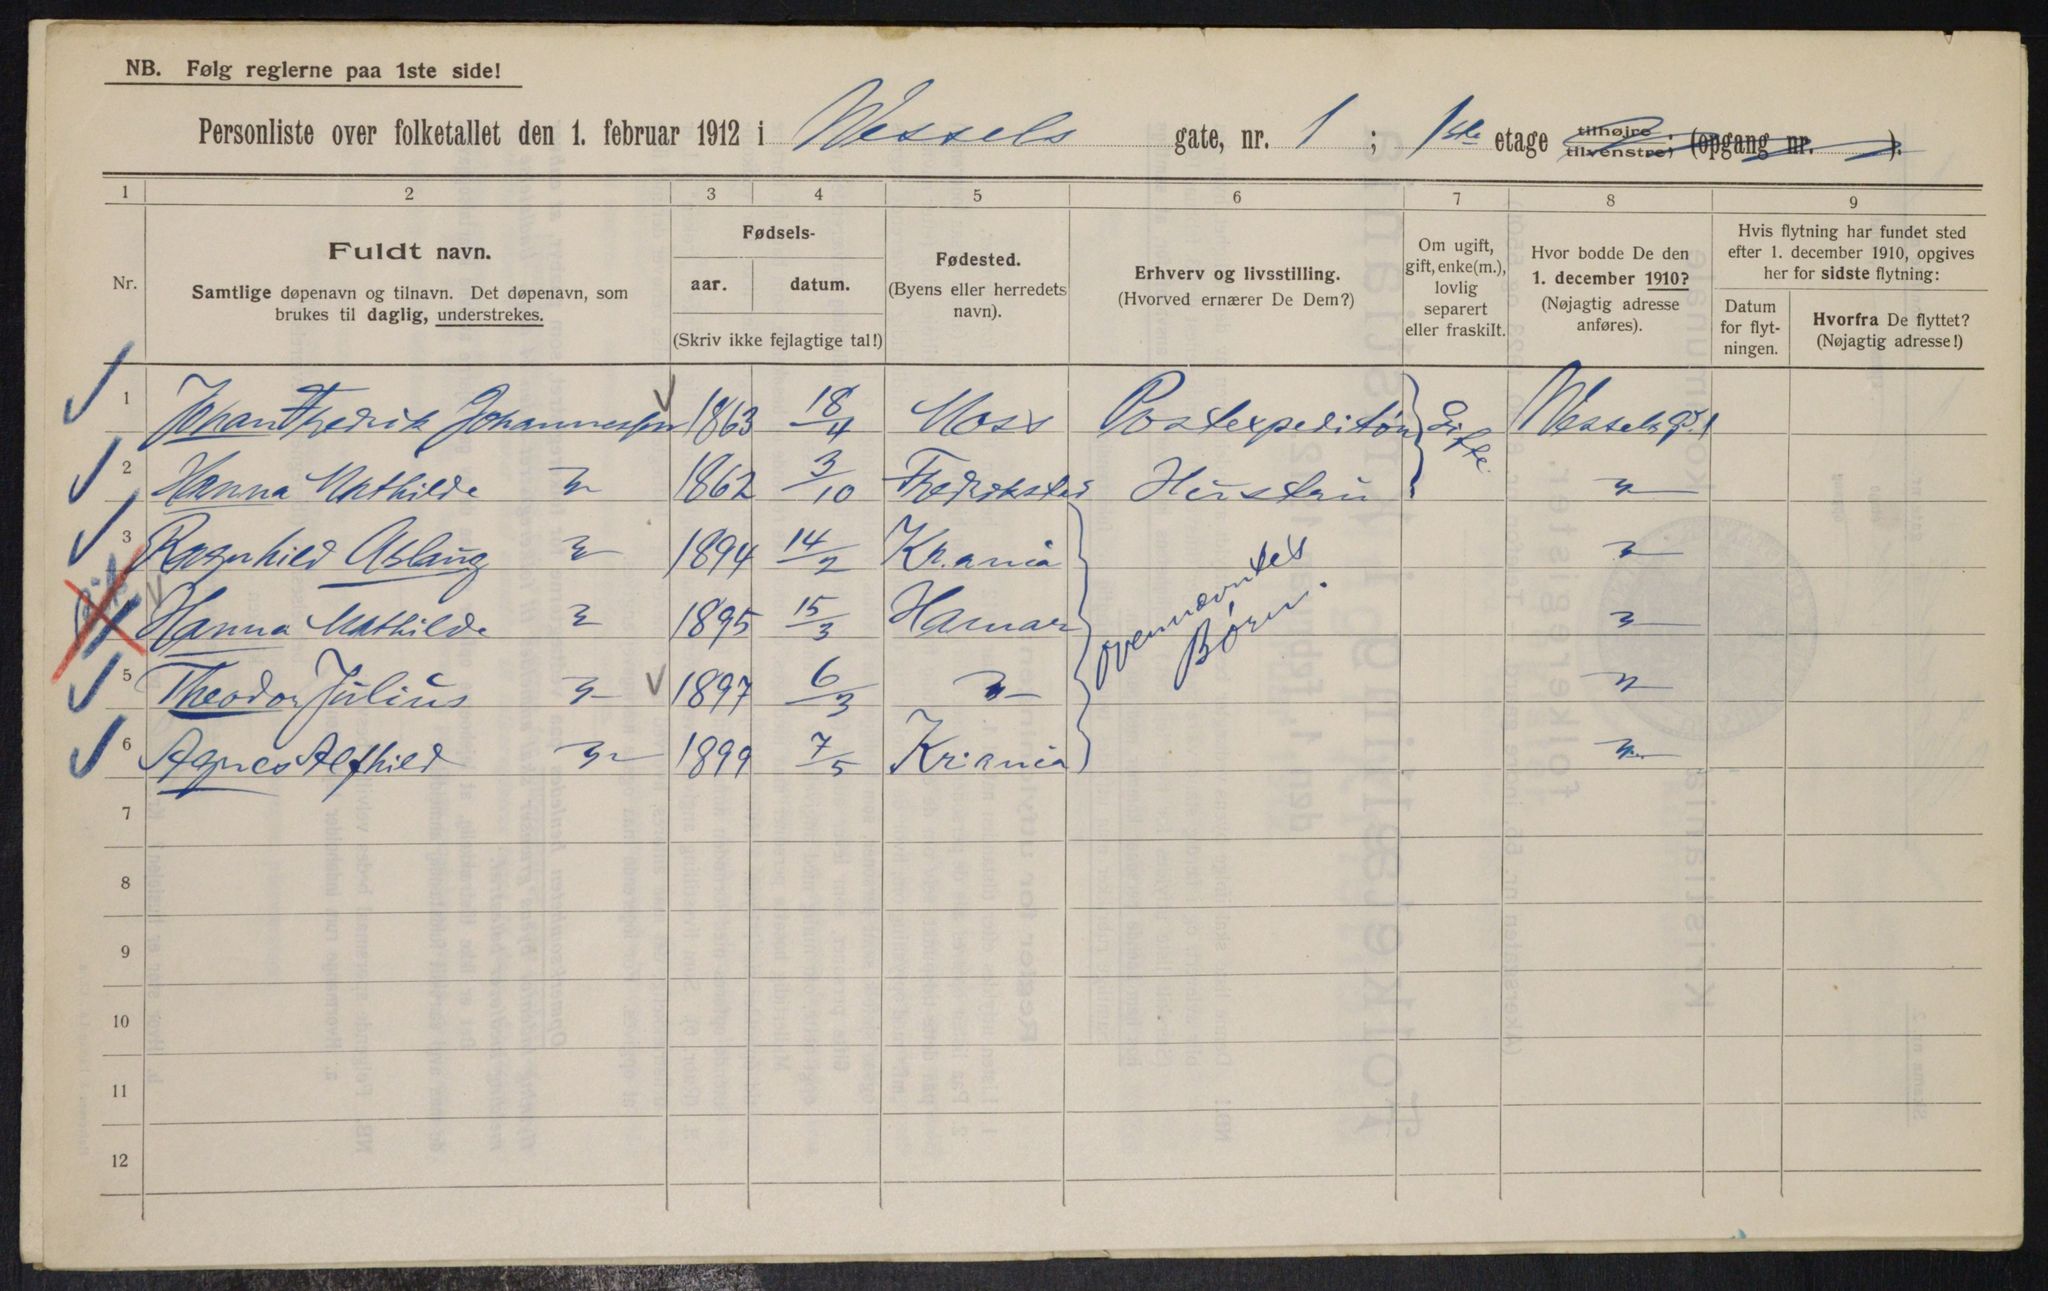 NB. Følg reglerne paa 1ste side!
Personliste over folketallet den 1. februar 1912 i Wessels gate, nr. 1 ; 1ste etage tilhøjre tilvenstre) (opgang nr. ).
1 2 3 4 5 6 7 8 9
Nr.
Fuldt navn.
Samtlige døpenavn og tilnavn. Det døpenavn, som
brukes til daglig, understrekes.
Fødsels-
aar. datum.
(Skriv ikke fejlagtige tal!)
Fødested.
(Byens eller herredets
navn).
Erhverv og livsstilling.
(Hvorved ernærer De Dem?)
Om ugift,
gift, enke(m.),
lovlig
separert
eller fraskilt.
Hvor bodde De den
1. december 1910?
(Nøjagtig adresse
anføres).
Hvis flytning har fundet sted
efter 1. december 1910, opgives
her for sidste flytning:
Datum
for flyt-
ningen.
Hvorfra De flyttet?
(Nøjagtig adresse!)
1 Johan Fredrik Johannessen 1863 18/4 Moss Postexpeditør Gifte Wessels g. 1
2 Hanna Mathilde " 1862 3/10 Fredrikstad Hustru "
3 Ragnhild Aslaug " 1894 14/2 Kr.ania ovennævntes Børn. "
Hanna Mathilde " 1895 15/3 Hamar "
5 Theodor Julius " 1897 6/3 " "
6 Agnes Alfhild " 1899 7/5 Kr.ania "
7
8
9
10
11
12